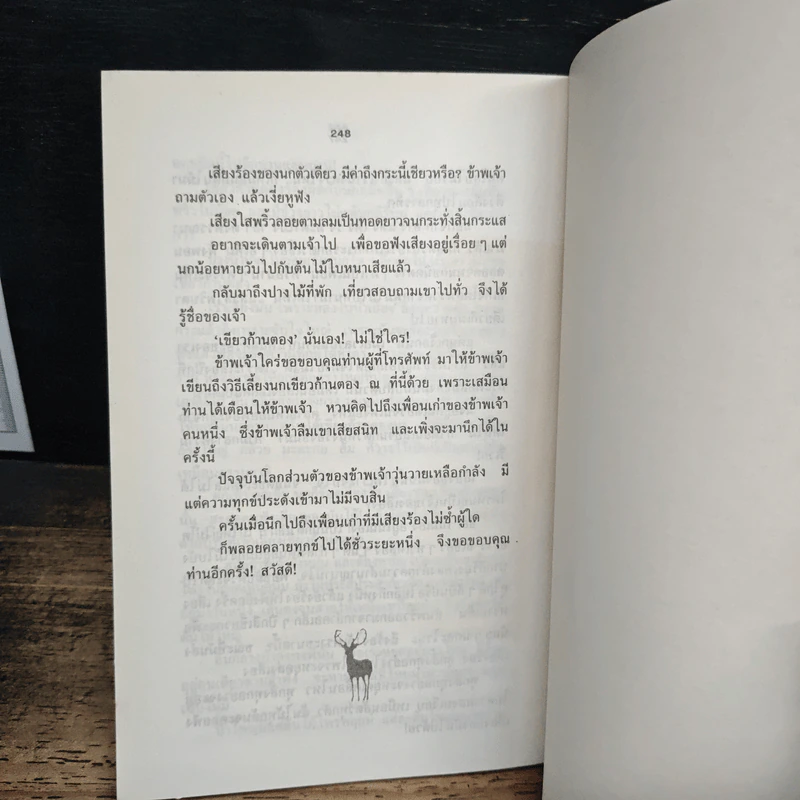 248
เสียงร้องของนกตัวเดียว มีค่าถึงกระนี้เชียวหรือ? ข้าพเจ้า
ถามตัวเอง แล้วเงี่ยหูฟัง
เสียงใสพริ้วลอยตามลมเป็นทอดยาวจนกระทั่งสิ้นกระแส
อยากจะเดินตามเจ้าไป เพื่อขอฟังเสียงอยู่เรื่อย ๆ แต่
นกน้อยหายวับไปกับต้นไม้ใบหนาเสียแล้ว
กลับมาถึงปางไม้ที่พัก เที่ยวสอบถามเขาไปทั่ว จึงได้
รู้ชื่อของเจ้า
‘เขียวก้านตอง’ นั่นเอง! ไม่ใช่ใคร!
ข้าพเจ้าใคร่ขอขอบคุณท่านผู้ที่โทรศัพท์ มาให้ข้าพเจ้า
เขียนถึงวิธีเลี้ยงนกเขียวก้านตอง ณ ที่นี้ด้วย เพราะเสมือน
ท่านได้เตือนให้ข้าพเจ้า หวนคิดไปถึงเพื่อนเก่าของข้าพเจ้า
คนหนึ่ง ซึ่งข้าพเจ้าลืมเขาเสียสนิท และเพิ่งจะมานึกได้ใน
ครั้งนี้
ปัจจุบันโลกส่วนตัวของข้าพเจ้าวุ่นวายเหลือกำลัง มี
แต่ความทุกข์ประดังเข้ามาไม่มีจบสิ้น
ครั้นเมื่อนึกไปถึงเพื่อนเก่าที่มีเสียงร้องไม่ซ้ำผู้ใด
ก็พลอยคลายทุกข์ไปได้ชั่วระยะหนึ่ง จึงขอขอบคุณ
ท่านอีกครั้ง! สวัสดี!